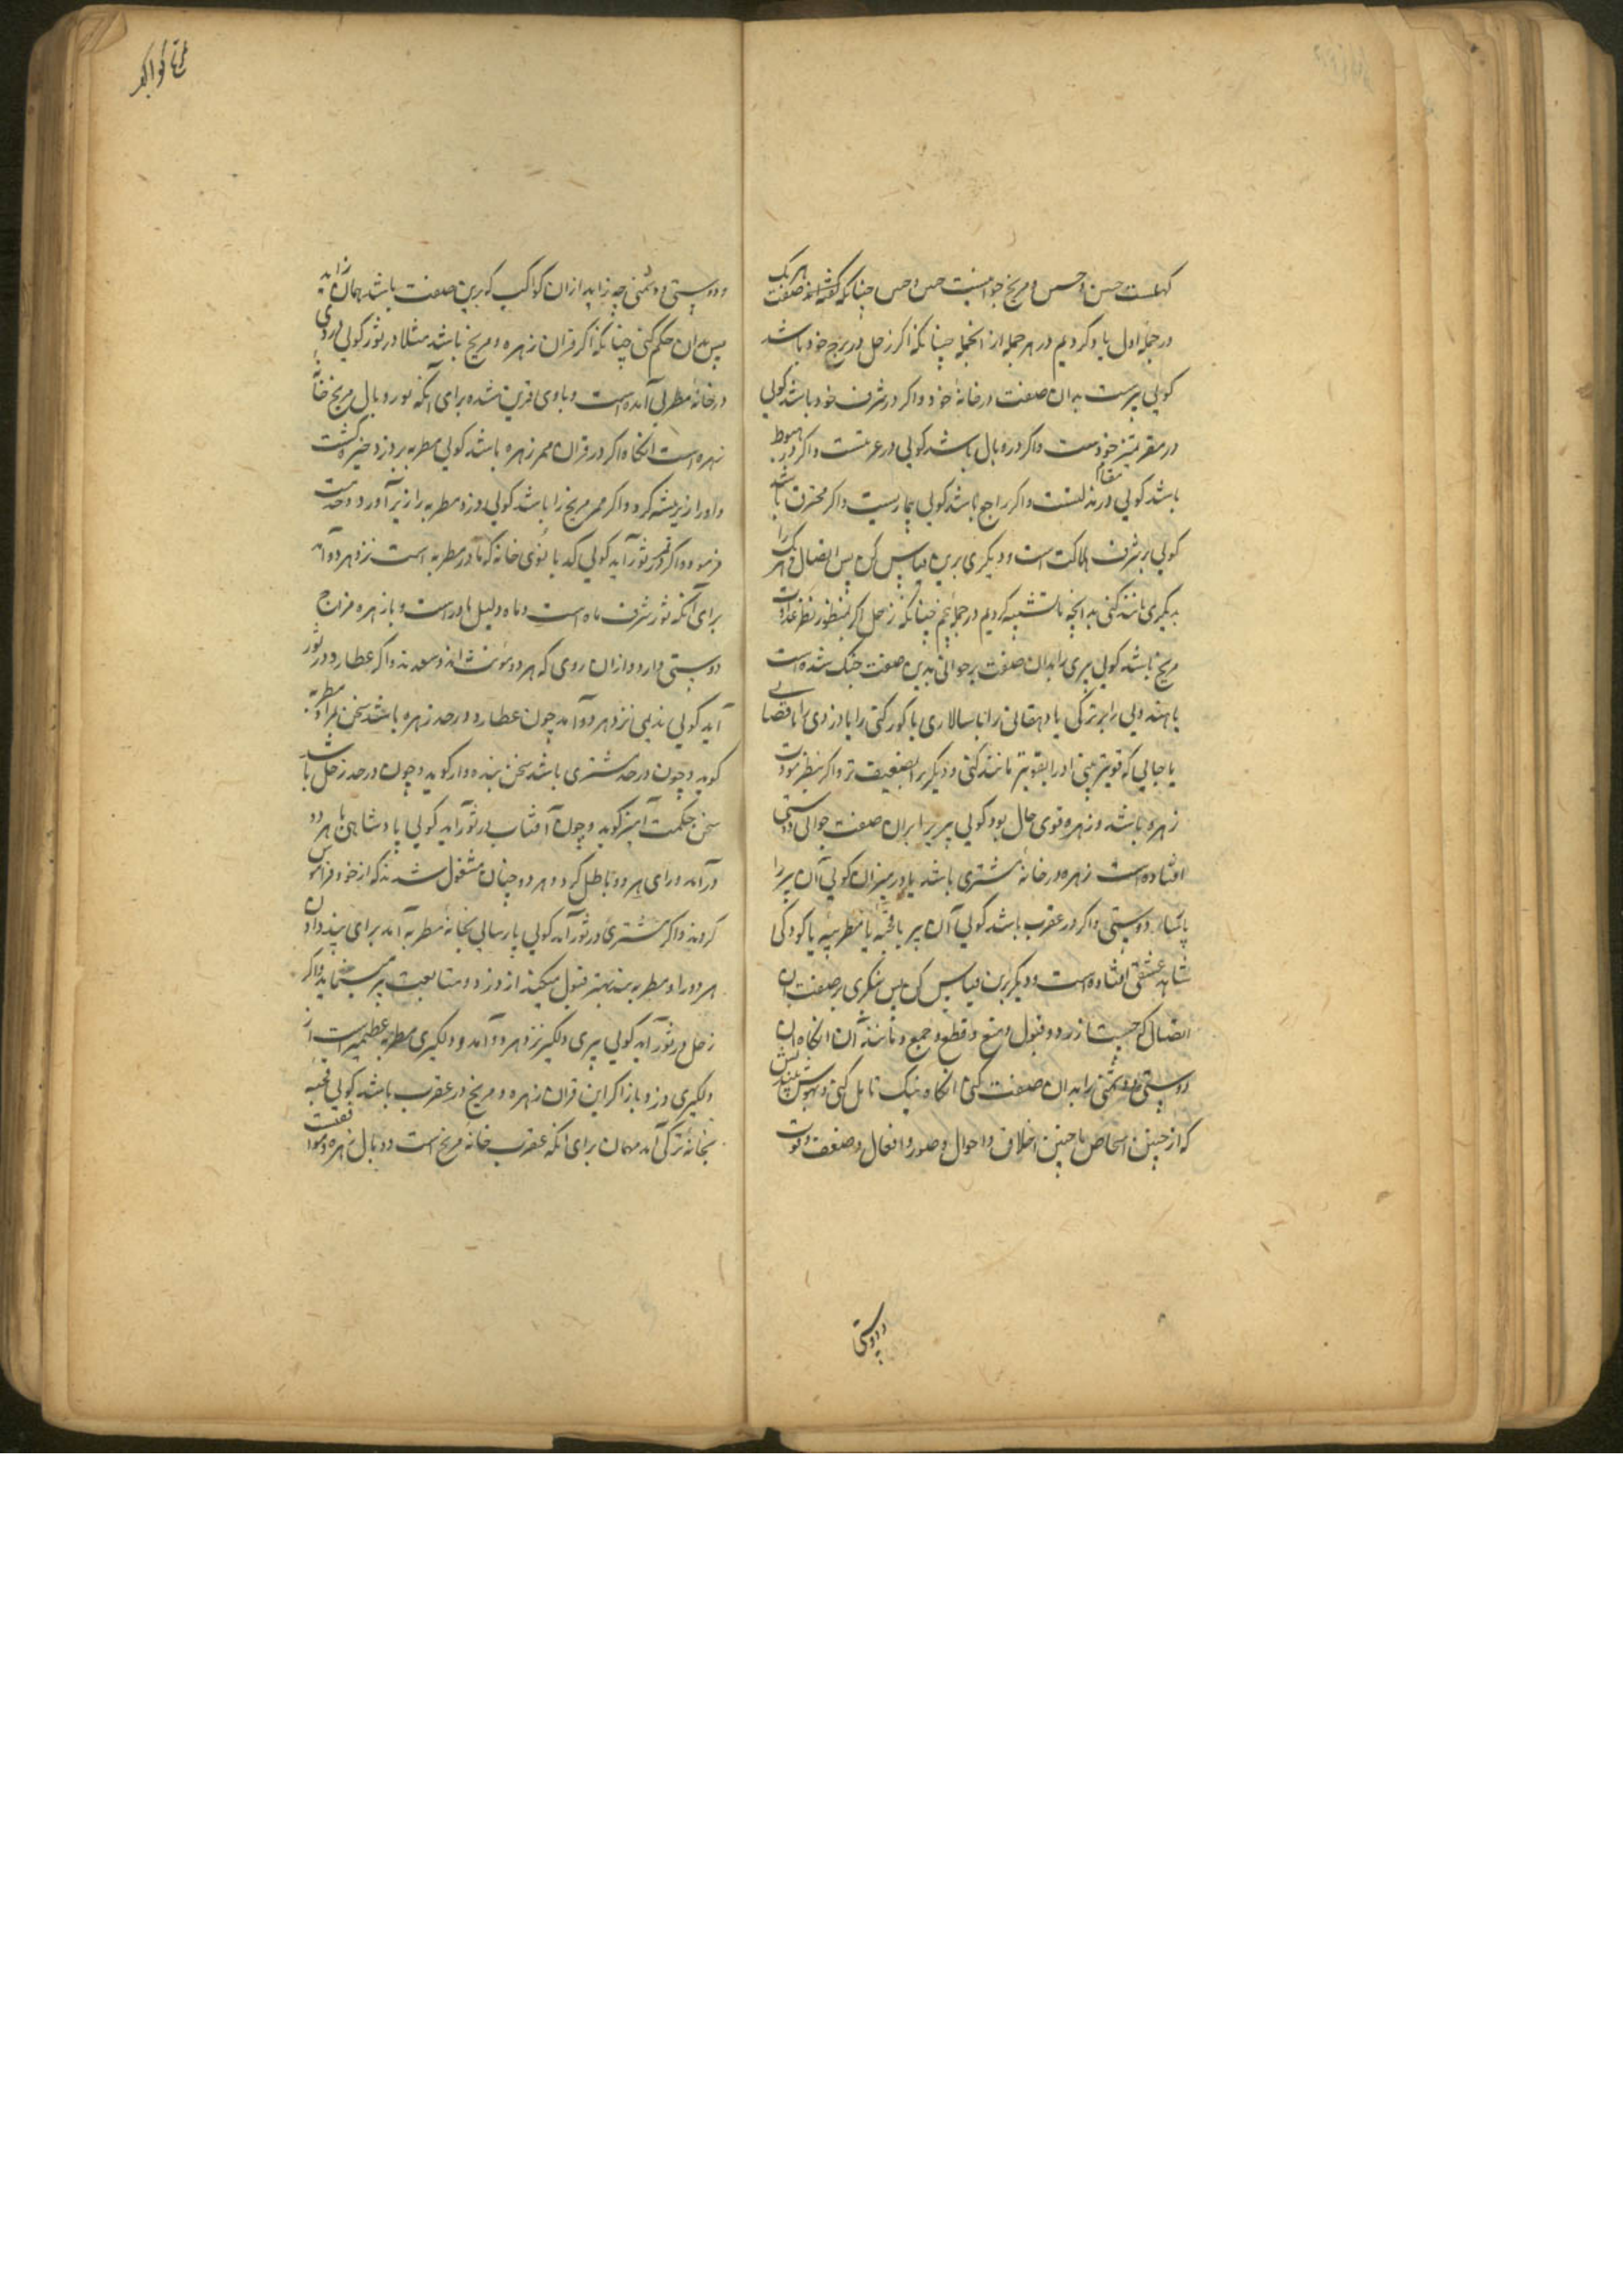 کهلست حسن و حس و مریخ جوانیست حس و حس چنانکه گفته‌اند صفت هر یک
در جمله اول یاد کردیم در هر جمله از انجمله چنانکه اگر زحل در برج خود باشد
کویی پیرست بدان صفت در خانهٔ خود و اکر در شرف خود باشد کویی
در مقر بهتر خودست و اکر در وبال باشد کویی در غربتست و اکر در هبوط
باشد کویی در مقام مذلتست و اکر راجع باشد کویی بیمارست و اکر محترق باشد
کویی بر شرف هلاکت است و دیکری برین قیاس کن پس اتصال هر یک را
بدیکری مانند کنی بدانچه ما تشبیه کردیم در جمله نیم چنانکه زحل اکر منظور نظر عداوت
مریخ باشد کویی پیری را بدان صفت بر جوانی بدین صفت جنک شده است
یا هندویی را بر ترکی یا دهقانی را با سالاری یا کورکنی را با دزدی یا با قصابی
یا جایی که قویتر بینی او را بقویتر مانند کنی و دیکر را بضعیف تر و اکر بنظر مودت
زهره باشد و زهره قوی حال بود کویی پیر را بران صفت جوانی دوستی
افتاده است زهره در خانهٔ مشتری باشد یا در میزان کویی آن پیر را
پارسا دوستی و اکر در عقرب باشد کویی آن پیر با قحبهٔ یا مطربهٔ یا کودکی
شاهد عشقی افتاده است و دیکر برین قیاس کن پس بنکری بر صفت ان
اتصال که چیست از رد و قبول و منع و قطع و جمع و مانند آن انکاه ان
دوستی و دشمنی را بدان صفت کنی انکاه نیک تامل کنی و بهوش بیندیش
که از چنین اشخاص با چنین اخلاق و احوال و صور و افعال و ضعف و قوت
و دوستی
و دوستی و دشمنی چه زاید از ان کواکب که برین صفت باشد همان زاید
پس بدان حکم کنی چنانکه اکر قران زهره و مریخ باشد مثلا در ثور کویی دزدی
در خانهٔ مطربی آمده است و با وی قرین شده برای آنکه ثور وبال مریخ خانهٔ
زهره است انکاه اکر در قران ممر زهره باشد کویی مطربه بر دزد خیره کشت
و او را زیر بیشه کرد و اکر ممر مریخ را باشد کویی دزد مطربه را زیر آورد و خدمت
فرموده و اکر قمر در ثور آید کویی کدبانوی خانه که مادر مطربه است نزد هر دو آمد
برای آنکه ثور شرف ماه است و ماه دلیل مادرست و با زهره مزاج
دوستی دارد و از ان روی که هر دو مؤنث اند و سعدند و اکر عطارد در ثور
آید کویی ندیمی نزد هر دو آمد چون عطارد در حد زهره باشد سخن بمراد مطربه
کوید و چون در حد مشتری باشد سخن بنده وار کوید و چون در حد زحل باشد
سخن حکمت آمیز کوید و چون آفتاب در ثور آید کویی پادشاهی با هر دو
در آمد و رای هر دو باطل کرد و هر دو چنان مشغول شدند که از خود فراموش
کردند و اکر مشتری در ثور آمد کویی پارسایی بخانهٔ مطربه آمد برای پند دادن
هر دو را و مطربه پند بهتر قبول میکند از دزد و متابعت پیر مینماید و اکر
زحل در ثور آید کویی پیری دلکیر نزد هر دو آمد و دلکیری مطربه عظیم‌تر است از
دلکیری دزد و باز اکر این قران زهره و مریخ در عقرب باشد کویی قحبهٔ
بخانهٔ ترکی آمد مهمان برای انکه عقرب خانهٔ مریخ است و وبال زهره